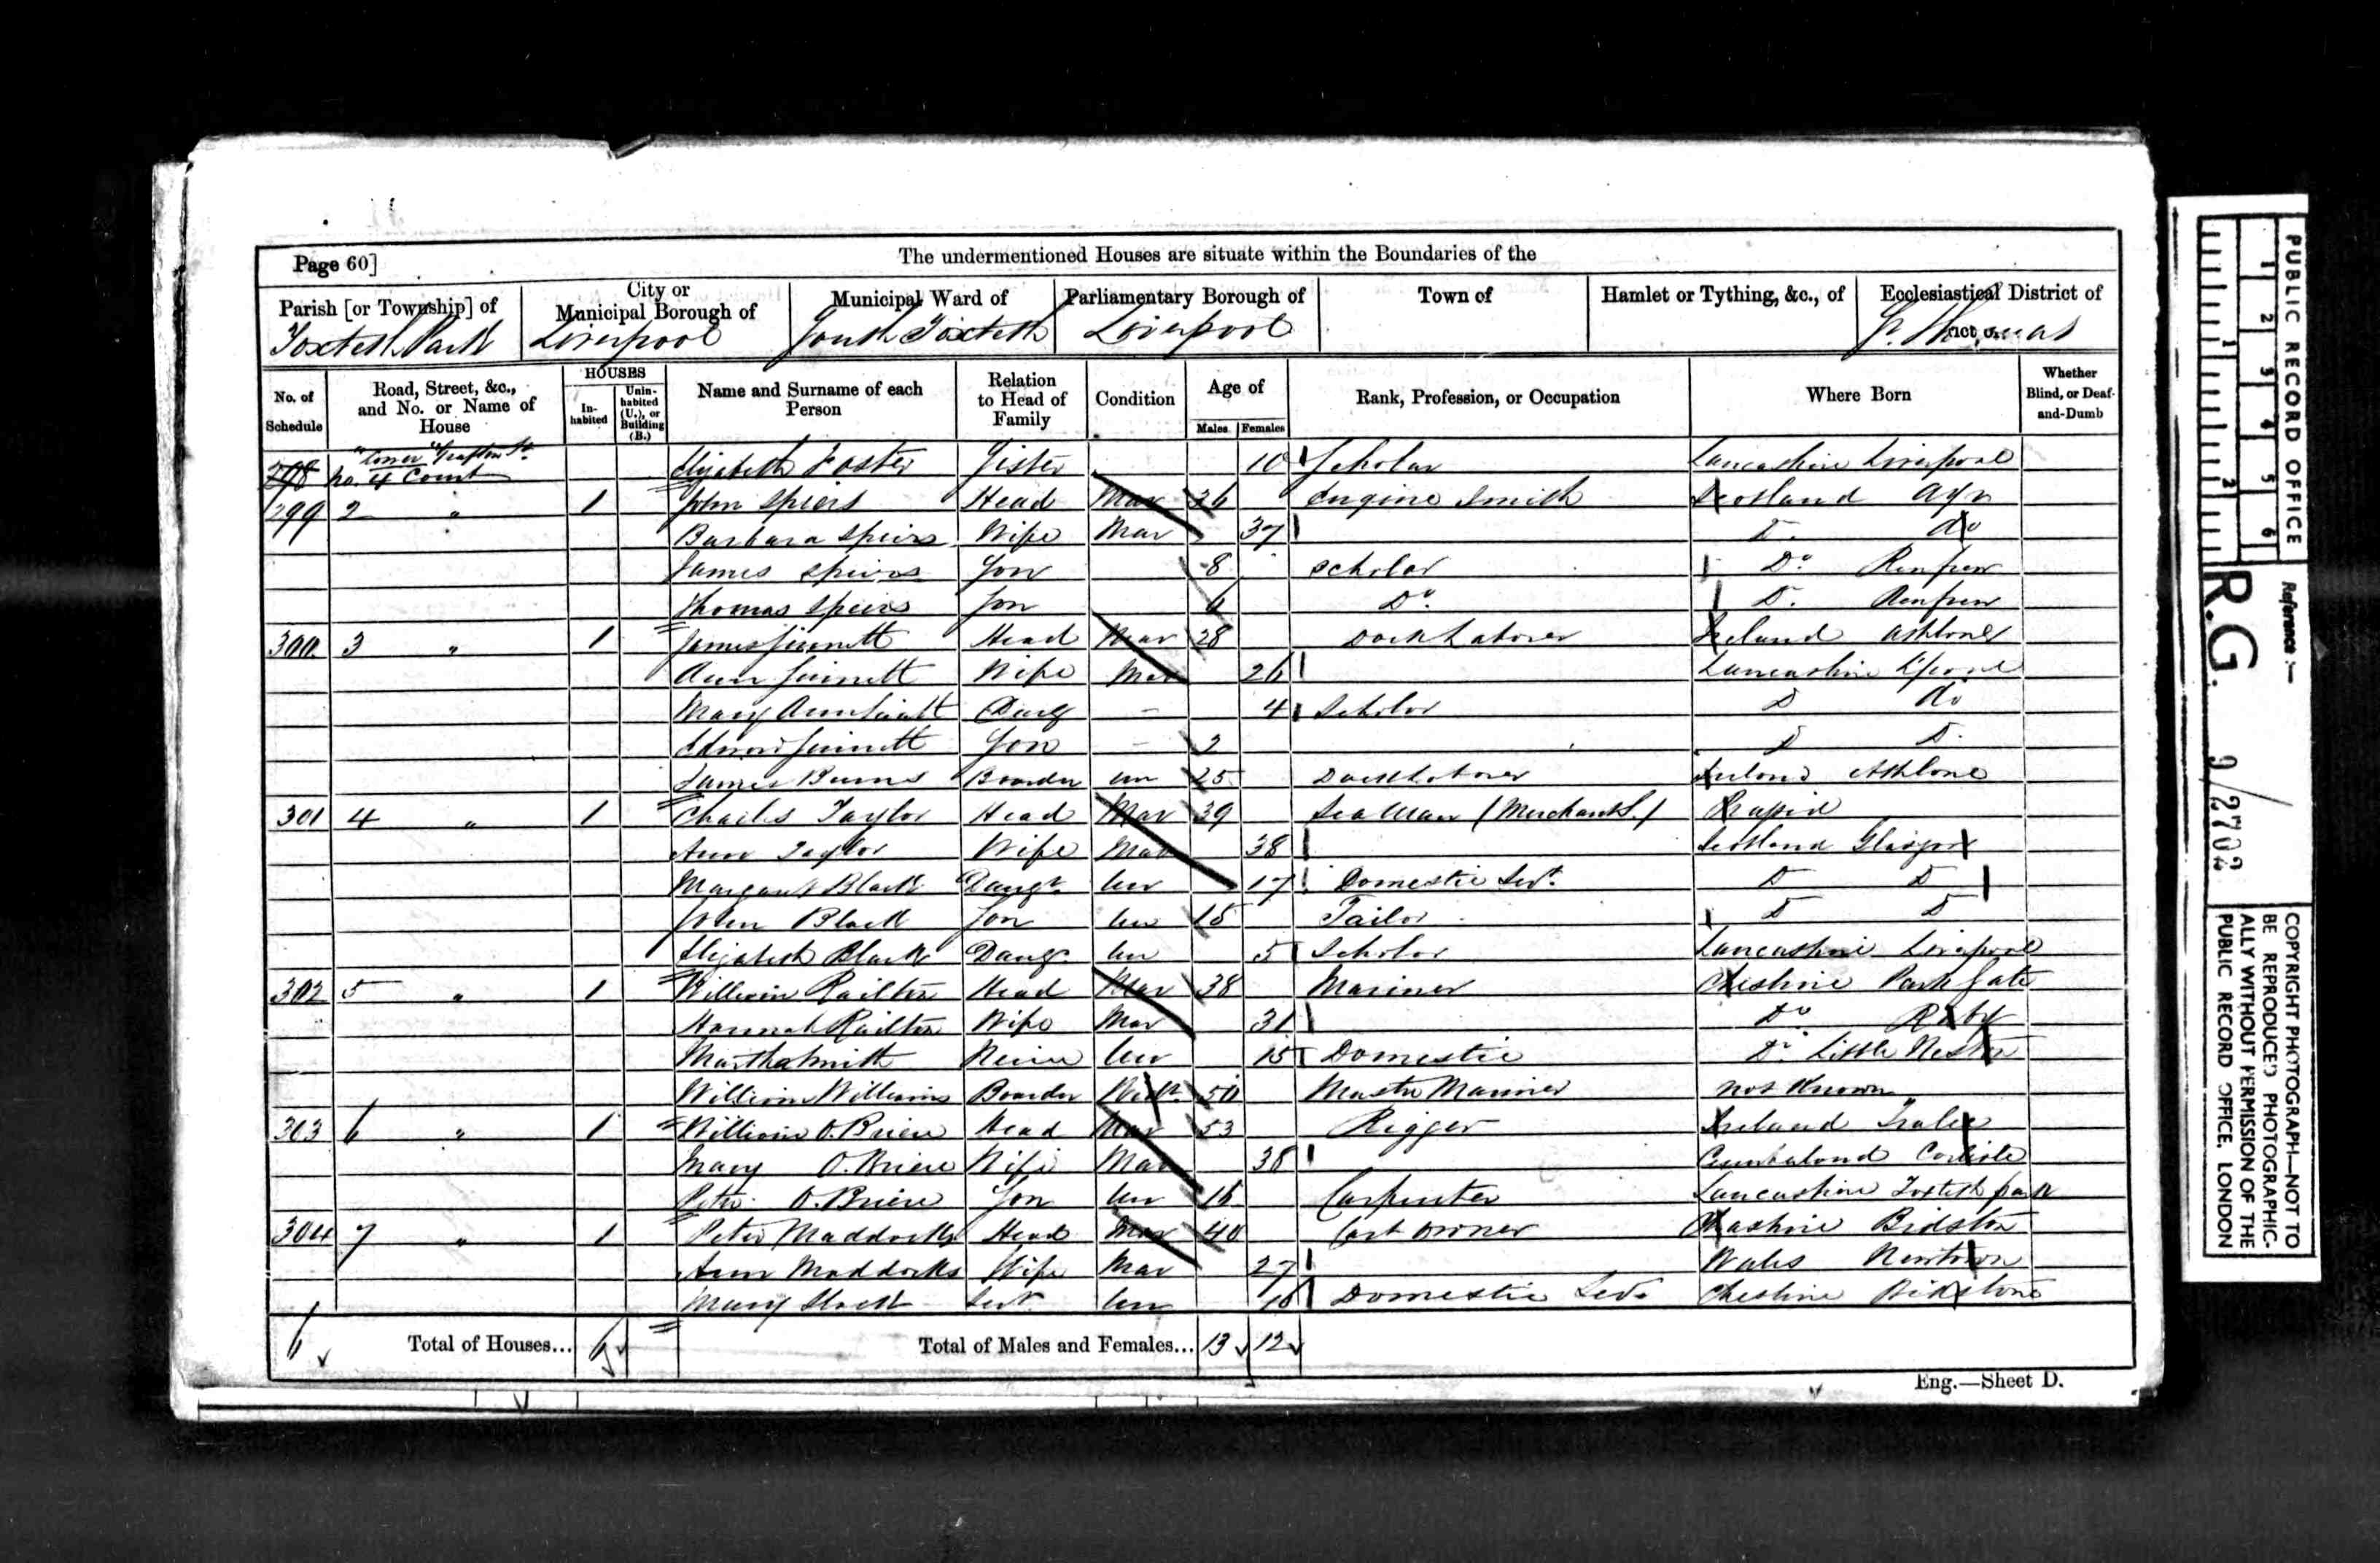 Page 60]
The undermentioned Houses are situate within the Boundaries of the
Parish [or Township] of
City or Municipal Borough of
Municipal Ward of
Parliamentary Borough of
Town of
Hamlet or Tything, &c., of
Ecclesiastical District of
Toxteth Park Liverpool South Toxteth Liverpool St. Thomas
No. of Schedule
Road, Street, &c., and No. or Name of House
HOUSES
In-habited
Unin-habited (U.), or Building (B.)
Name and Surname of each Person
Relation to Head of Family
Condition
Age of
Males Females
Rank, Profession, or Occupation
Where Born
Whether Blind, or Deaf-and-Dumb
Grafton St.
298 No. 4 Court Elizabeth Foster Sister 10 Scholar Lancashire Liverpool
299 2 " 1 John Speirs Head Mar 36 Engine Smith Scotland Ayr
Barbara Speirs Wife Mar 37 Do. do
James Speirs Son 8 Scholar Do. Renfrew
Thomas Speirs Son 6 Do. Do. Renfrew
300 3 " 1 James Head Mar 28 Dock Laborer Ireland Athlone
Ann Wife Mar 26 Lancashire L'pool
Mary Ann Daug 4 Scholar D do
Edward Son 2 D D.
James Burns Boarder un 25 Dock Laborer Ireland Athlone
301 4 " 1 Charles Taylor Head Mar 39 Seaman (Merchant S.)
Ann Taylor Wife Mar 38 Scotland Glasgow
Margaret Black Daugr. Un 17 Domestic Servt. D D
John Black Son Un 15 Tailor D D
Elizabeth Black Daugr. Un 5 Scholar Lancashire Liverpool
302 5 " 1 William Railton Head Mar 38 Mariner Cheshire Park Gate
Hannah Railton Wife Mar 31 Do. Raby
Martha Smith Niece Un 15 Domestic Do. Little Neston
William Williams Boarder Widr 50 Master Mariner not known
303 6 " 1 William O.Brien Head Mar 53 Rigger Ireland Tralee
Mary O.Brien Wife Mar 38 Cumberland Carlisle
Peter O.Brien Son Un 16 Carpenter Lancashire Toxteth park
304 7 " 1 Peter Maddocks Head Mar 40 Cart owner Cheshire Bidston
Ann Maddocks Wife Mar 27 Wales Newtown
Mary Servt Un 16 Domestic Servt. Cheshire Bidstone
6 Total of Houses... 6 Total of Males and Females... 13 12
Eng.—Sheet D.
PUBLIC RECORD OFFICE
1 2 3 4 5 6
1 2
Reference :—
R.G. 9/2702
COPYRIGHT PHOTOGRAPH—NOT TO
BE REPRODUCED PHOTOGRAPHIC-
ALLY WITHOUT PERMISSION OF THE
PUBLIC RECORD OFFICE, LONDON